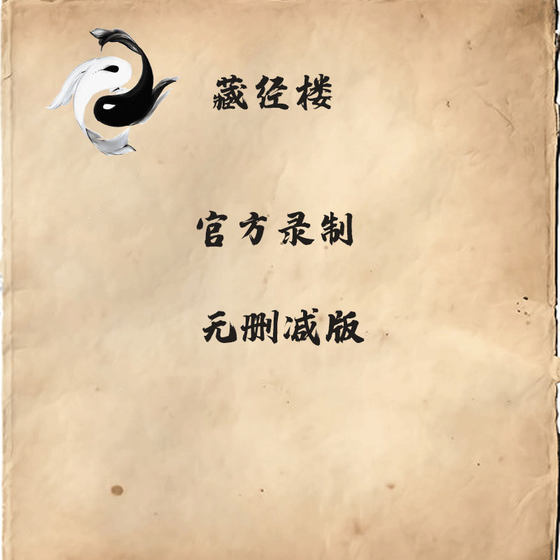 藏经楼
官方录制
无删减版